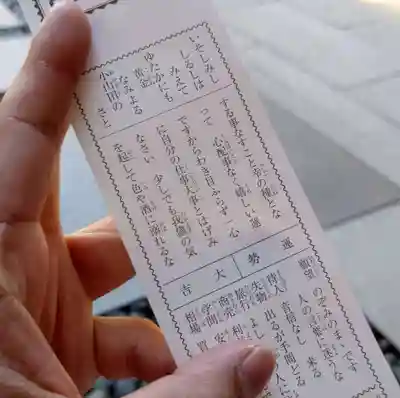 いそしみし
しるしは
みえて
ゆたかにも
黄金
なみよる
小山田の
さと
する事なすこと幸の種とな
って 心配事なく嬉しい運
ですからわき目ふらず 心
に自分の仕事大事とはげみ
なさい 少しでも我儘の気
を起して色や酒に溺れるな
運勢 大吉
願望 のぞみのまゝです
人の言葉に迷うな
待人 音信なし 来る
失物 出るが手間どる
旅行 よし 人に
商売 利
学問 安
相場 買